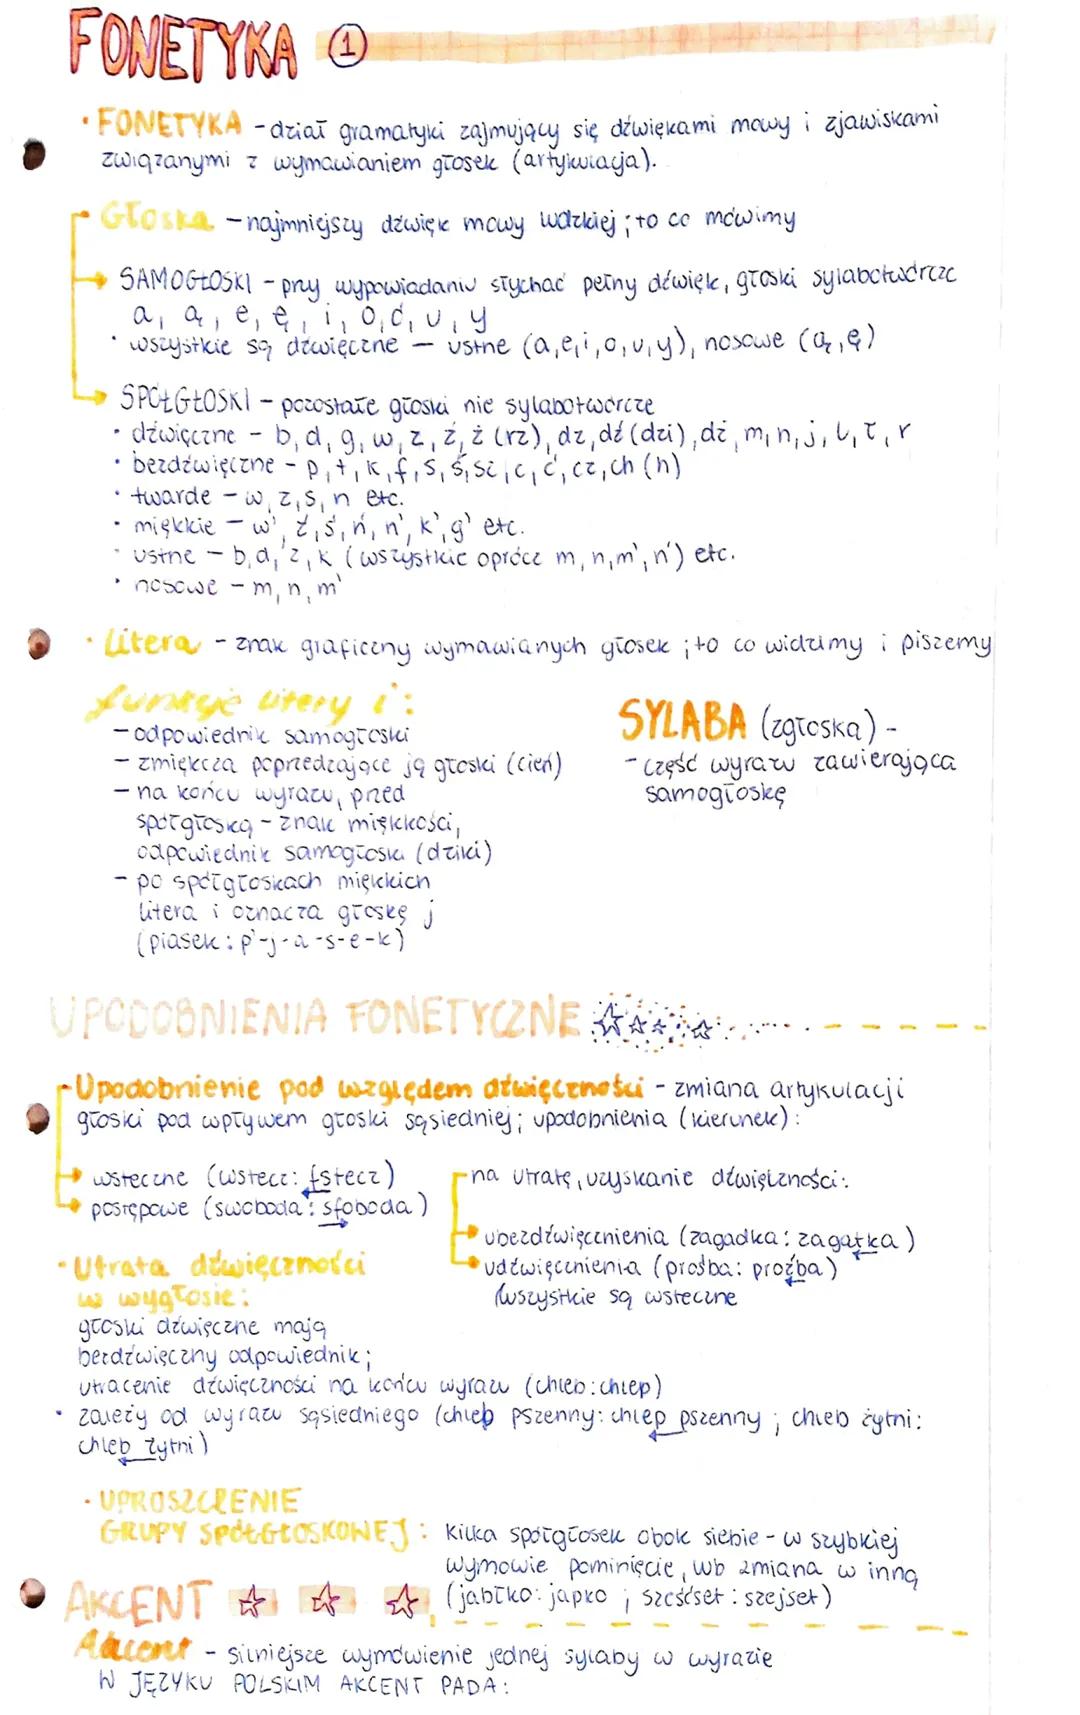 FONETYKA 1
• FONETYKA - dział gramatyki zajmujący się dźwiękami mowy i zjawiskami
związanymi z wymawianiem głosek (artykulacja).
• Głoska - najmniejszy dźwięk mowy ludzkiej ; to co mówimy
SAMOGŁOSKI - przy wypowiadaniu słychać pełny dźwięk, głoski sylabotwórcze
a, ą, e, ę, i, o, ó, u, y
• wszystkie są dźwięczne - ustne (a,e,i,o,u,y), nosowe (ą,ę)
SPÓŁGŁOSKI - pozostałe głoski nie sylabotwórcze
• dźwięczne - b, d, g, w, z, ź, ż (rz), dz, dź (dzi), dż, m, n, j, l, ł, r
• bezdźwięczne - p, t, k, f, s, ś, sz, c, ć, cz, ch (h)
• twarde - w, z, s, n etc.
• miękkie - w', ź, ś, ń, n', k', g' etc.
• ustne - b, d, z, k (wszystkie oprócz m, n, m', n') etc.
• nosowe - m, n, m'
• Litera - znak graficzny wymawianych głosek ; to co widzimy i piszemy
funkcje litery i :
- odpowiednik samogłoski
- zmiękcza poprzedzające ją głoski (cień)
- na końcu wyrazu, przed
spółgłoską - znak miękkości,
odpowiednik samogłoski (dziki)
- po spółgłoskach miękkich
litera i oznacza głoskę j
(piasek : p'-j-a-s-e-k)
SYLABA (zgłoska) -
- część wyrazu zawierająca
samogłoskę
UPODOBNIENIA FONETYCZNE
Upodobnienie pod względem dźwięczności - zmiana artykulacji
głoski pod wpływem głoski sąsiedniej ; upodobnienia (kierunek) :
wsteczne (wstecz : fstecz)
postępowe (swoboda : sfoboda)
na utratę, uzyskanie dźwięczności :
ubezdźwięcznienia (zagadka : zagatka)
udźwięcznienia (prośba : proźba)
wszystkie są wsteczne
• Utrata dźwięczności
w wygłosie :
głoski dźwięczne mają
bezdźwięczny odpowiednik ;
utracenie dźwięczności na końcu wyrazu (chleb : chlep)
• zależy od wyrazu sąsiedniego (chleb pszenny : chlep pszenny ; chleb żytni :
chleb żytni)
• UPROSZCZENIE
GRUPY SPÓŁGŁOSKOWEJ : kilka spółgłosek obok siebie - w szybkiej
wymowie pominięcie, lub zmiana w inną
(jabłko : japko ; sześćset : szejset)
AKCENT
Akcent - silniejsze wymówienie jednej sylaby w wyrazie
W JĘZYKU POLSKIM AKCENT PADA :